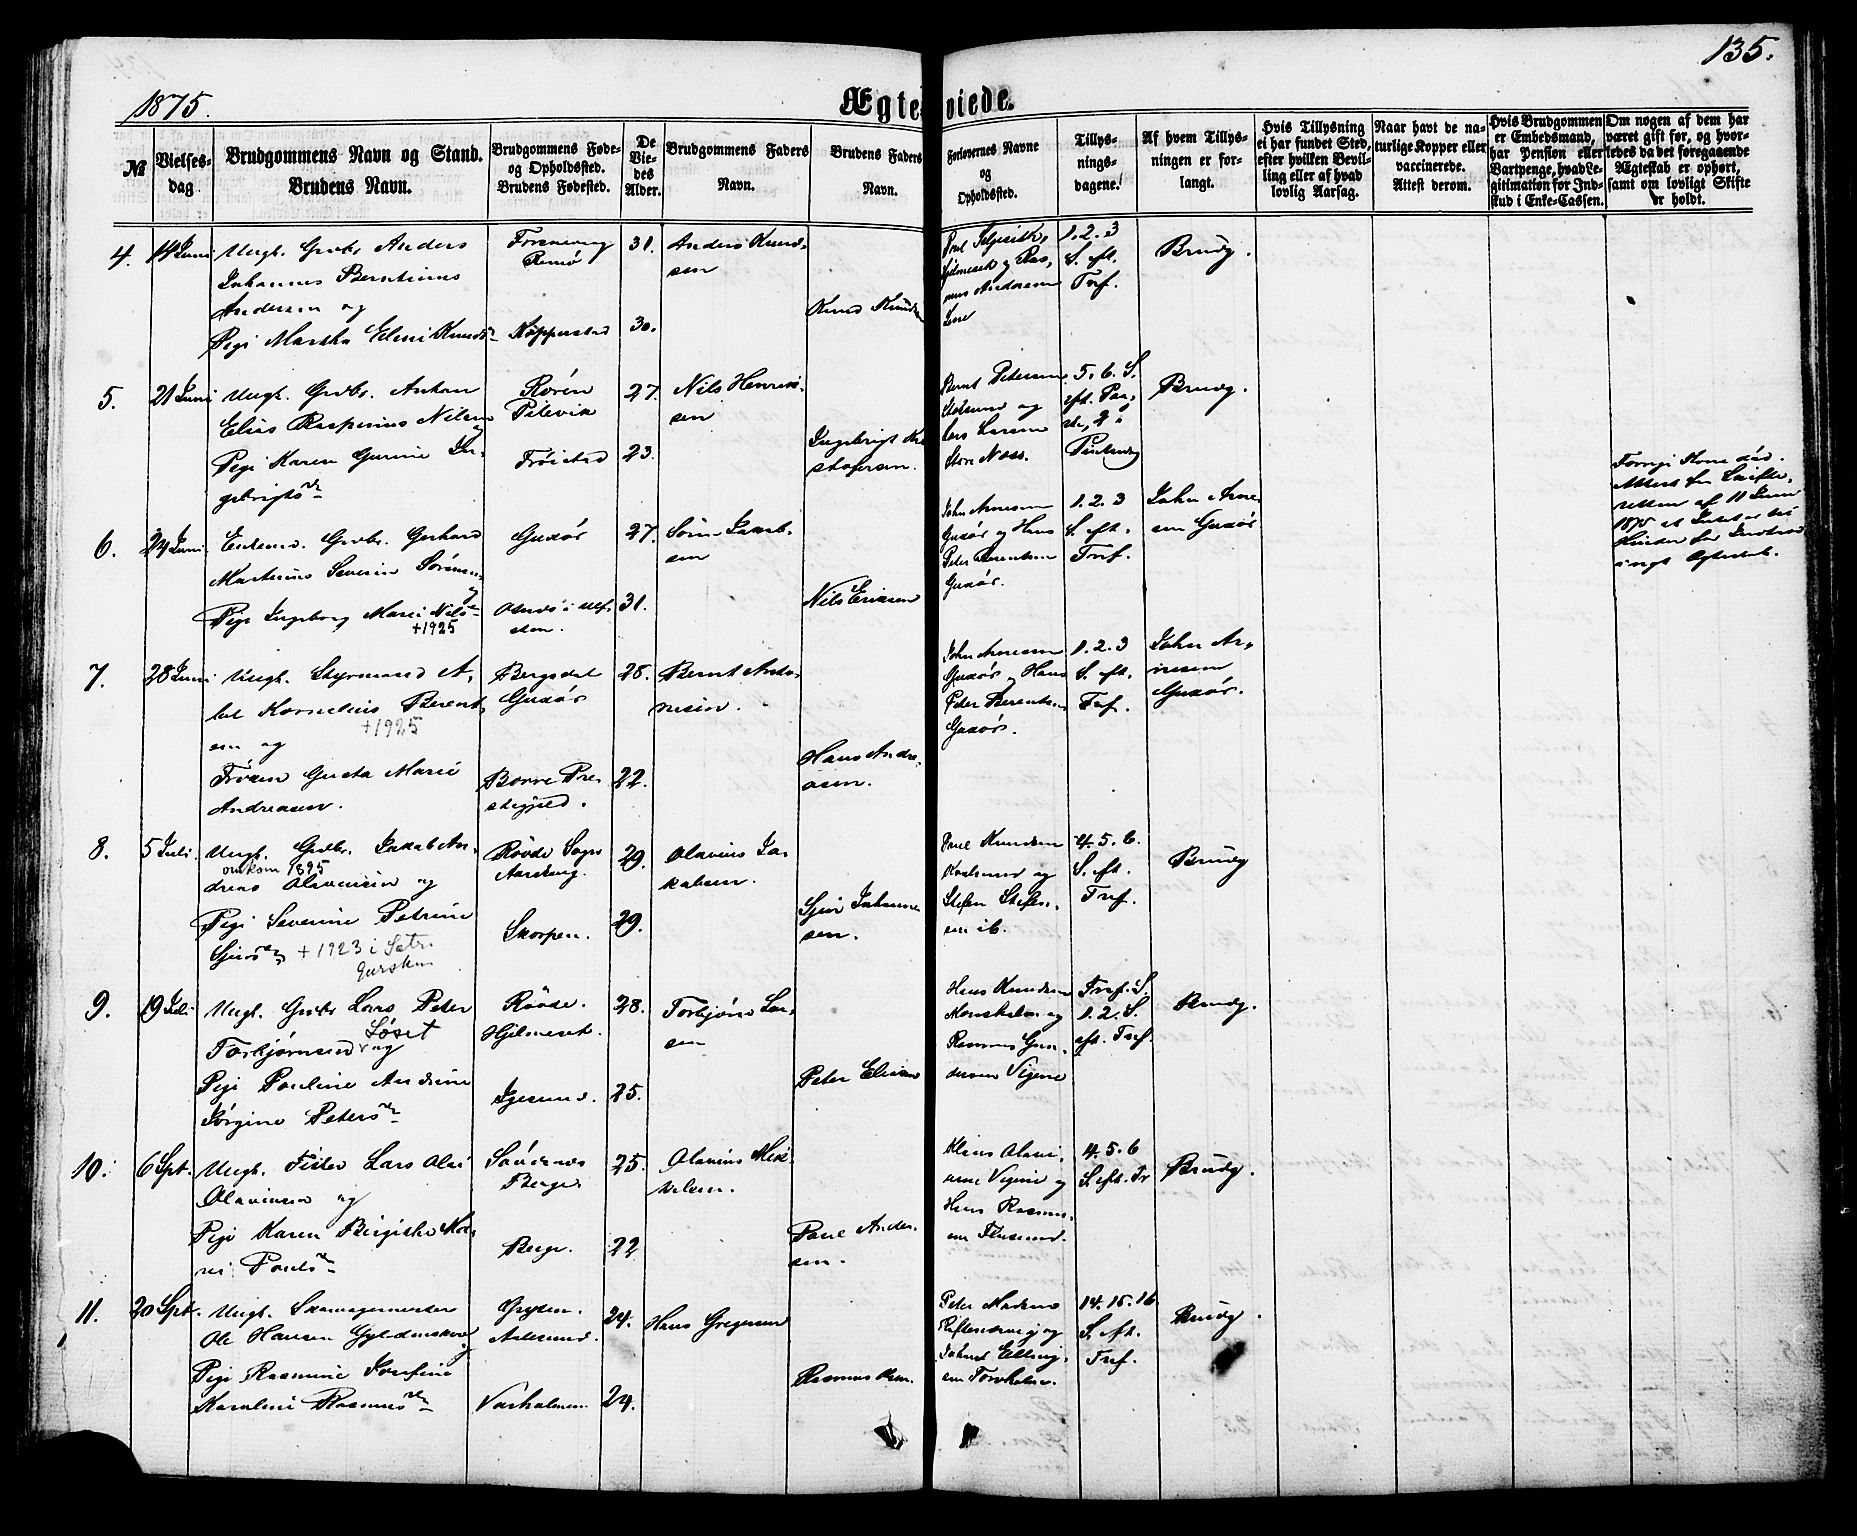 135.
1875.
Ægteviede.
№
Vielses-
dag
Brudgommens Navn og Stand.
Brudens Navn.
Brudgommens Føde-
og Opholdssted.
Brudens Fødested.
De
Vie-
des
Alder.
Brudgommens Faders
Navn.
Brudens Faders
Navn.
Forlovernes Navne
og
Opholdssted.
Tillys-
nings-
dagene.
Af hvem Tillys-
ningen er for-
langt.
Hvis Tillysning
ei har fundet Sted,
efter hvilken Bevil-
ling eller af hvad
lovlig Aarsag.
Naar havt de na-
turlige Kopper eller
vaccinerede.
Attest derom.
Hvis Brudgommen
er Embedsmand,
har Pension eller
Vartpenge, hvad Le-
gitimation for Ind-
skud i Enke-Cassen.
Om nogen af dem har
været gift før, og hvor-
ledes da det foregaaende
Ægteskab er ophørt,
samt om lovligt Skifte
er holdt.
4. 14 Juni Ungk. Grdbr. Anders
Johannes Berntinus
Andersen og
Pige Martha Elini Knudsdr
Remø
Kopperstad
31.
30.
Anders Knud-
sen
Knud Knudsen
1. 2. 3
S. eft.
Tref.
Brudg.
5. 21 Juni Ungk. Grdbr. Anton
Elias Kasperius Nilsen
og
Pige Karen Gurine In-
gebrigtsdr
Rovén
Pilevia
Frøistad
27.
23.
Nils Henrik-
sen
Ingebrigt
stofersen.
Bernt Petersen
og
Lars Larsen
Store Næss.
5. 6. S.
eft. Paa-
ske, 2 i
Brudg.
6. 24 Juni Enkemd. Grdbr. Gerhard
Martinus Severin Sørensen
og
Pige Ingeborg Marie Nilsdr
+1925
Gudør
27.
31.
Nils Eriksen
John Arnesen
Gudør og Hans
Peter Berentsen
Gudør.
1. 2. 3
S. eft.
Tref.
John Arne-
sen Gudør
Forrige Kone død.
Attest fra Skifte-
retten af 11 Juni
1875 at Intet er til
Hinder for Indtræd
i nyt Ægteskab.
7. 28 Juni Ungk. Styrmand A-
bel Kornelius Berent-
+1925
sen og
Frøken Gusta Marie
Andreasen.
Bergsdal
Gudør
Borre Præ-
stegjeld.
28.
22.
Bernt Anto-
nisen.
Hans Andre-
asen.
John Arnesen
Gudør og Hans
Peter Berentsen
Gudør.
1. 2. 3
S. eft.
Tref.
John Ar-
nesen
Gudør.
8. 5 Juli. Ungk. Grdbr. Jakob An-
omkom 1895
dreas Olavesen og
Pige Severine Petrine
Sjursdr + 1923 i Sætr.
Gursken
Røvde Sogn
Aarskog.
Skorpen.
29.
29.
Olavius Ja-
kobsen.
Sjur Johanne-
sen.
Paul Knudsen
og
Stefan Stefan-
sen ib.
4. 5. 6.
S. eft.
Tref.
Brudg
9. 19 Juli Ungk. Grdbr. Lars Peter
Løset
Torbjørnsen og
Pige Pauline Andrine
Jørgine Petersdr
Røvde.
Hjelmeset.
Igesund.
28.
25.
Torbjørn Lar-
sen
Peter Eliassen
Hans Knudsen
og
Rasmus Gun-
dersen Vigene
Tref. S.
1. 2. S.
eft. Tref.
Brudg.
10. 6 Spt. Ungk. Fisker Lars Olai
Olavesen og
Pige Karen Birgitha Ka-
rei Paulsdr
Sandenes
Berge
Berge.
25.
22
Olavius Mik-
kelsen.
Paul Ander-
sen.
Klaus Olavi-
usen Vigene og
Hans Rasmus-
sen Flusund.
4. 5. 6
S. eft. Tr
Brudg.
11. 20 Spt. Ungk. Skomagermester
Ole Hansen Gyldenskov
og
Pige Rasmine Josefine
Karoline Rasmusdr
Gryten.
Aalesund.
Vorholmen
24.
24.
Hans Gregersen
Rasmus
Peter Madsen
og
14. 15. 16
S. eft.
Tref.
Brudg.